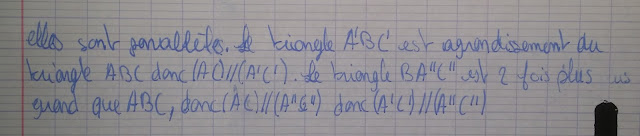 elles sont parallèles. Le triangle A'BC' est agrandissement du
triangle ABC donc (AC)//(A'C'). Le triangle BA"C" est 2 fois plus
grand que ABC, donc (AC)//(A"C") donc (A'C')//(A"C")